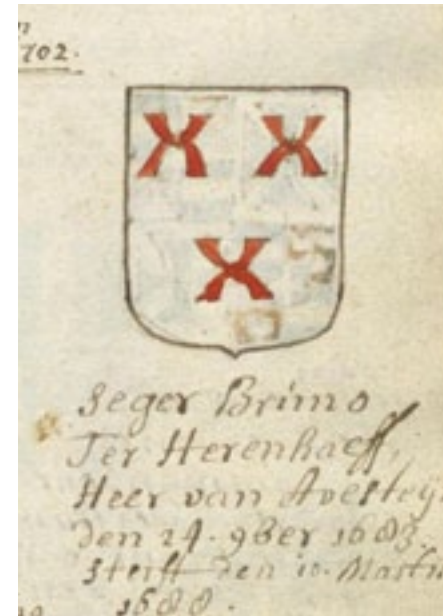 702.
Seger Brimo
Ter Herenhaeff,
Heer van Avestey
den 24. 9ber 1683.
sterft den 10. Martii
1688.